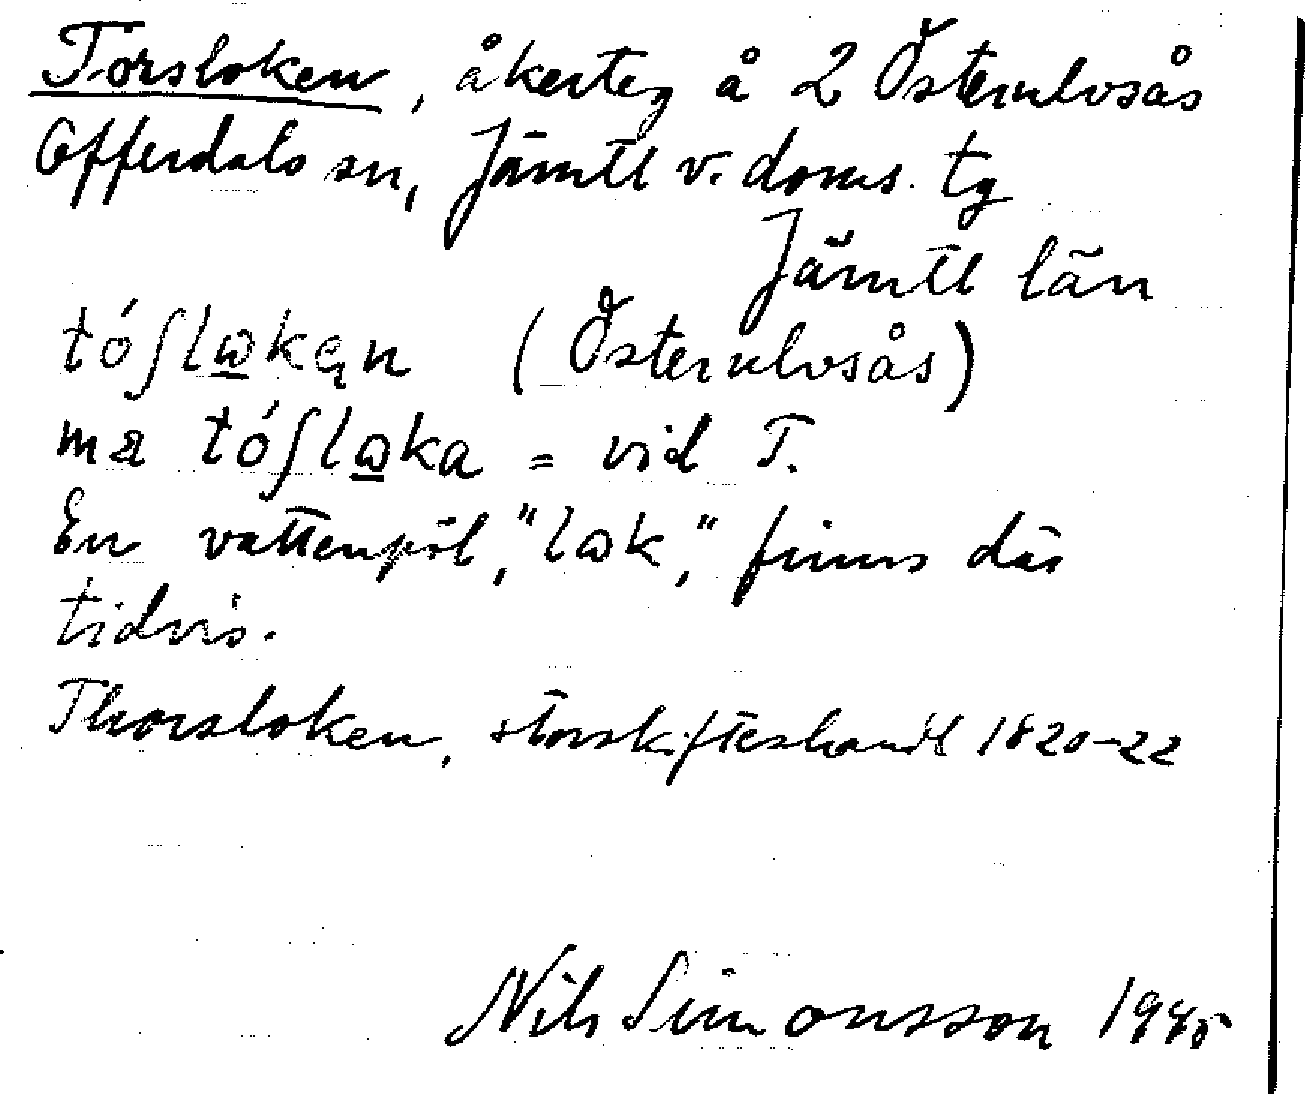 Torsloken, åkerteg å 2 Österulvsås
Offerdals sn, Jämtl v. doms. tg
Jämtl län
tóʃlꞷ̠kęn (Österulvsås)
mæ tóʃlꞷ̠ka = vid T.
En vattenpöl, "lꞷk", finns där
tidvis.
Thorsloken, storskifteshandl 1820-22
Nils Simonsson 1945